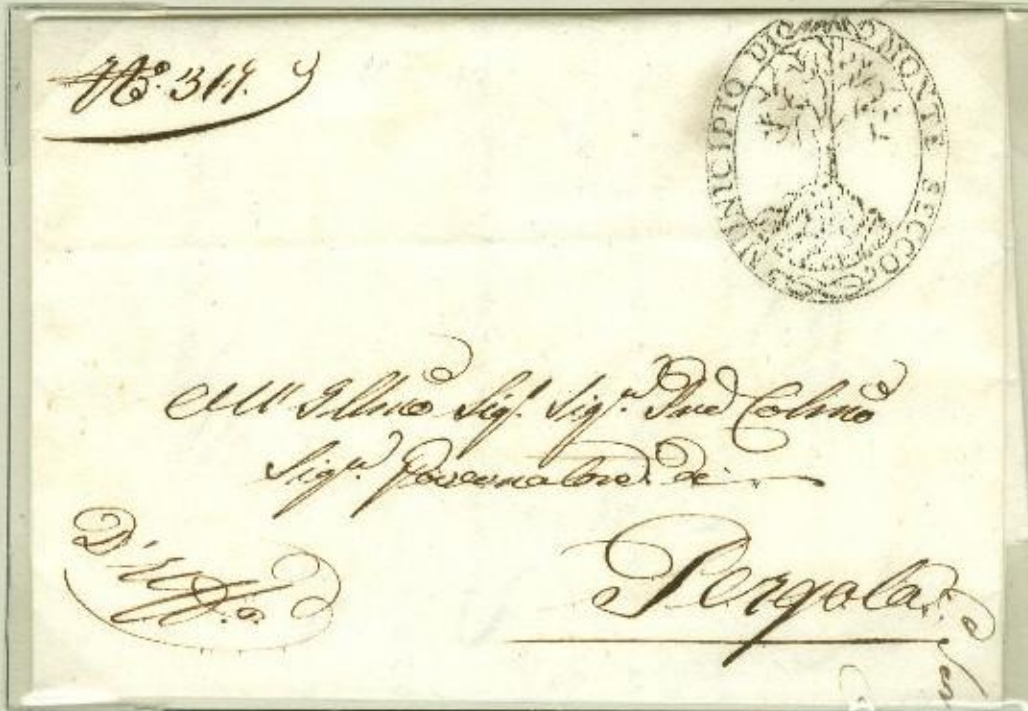 N.º 317.
MUNICIPIO DI MONTE SECCO
All' Illmo Sigr. Sigr. Pne Colmo
Sigr. Governatore di
D'Uffo.
Pergola